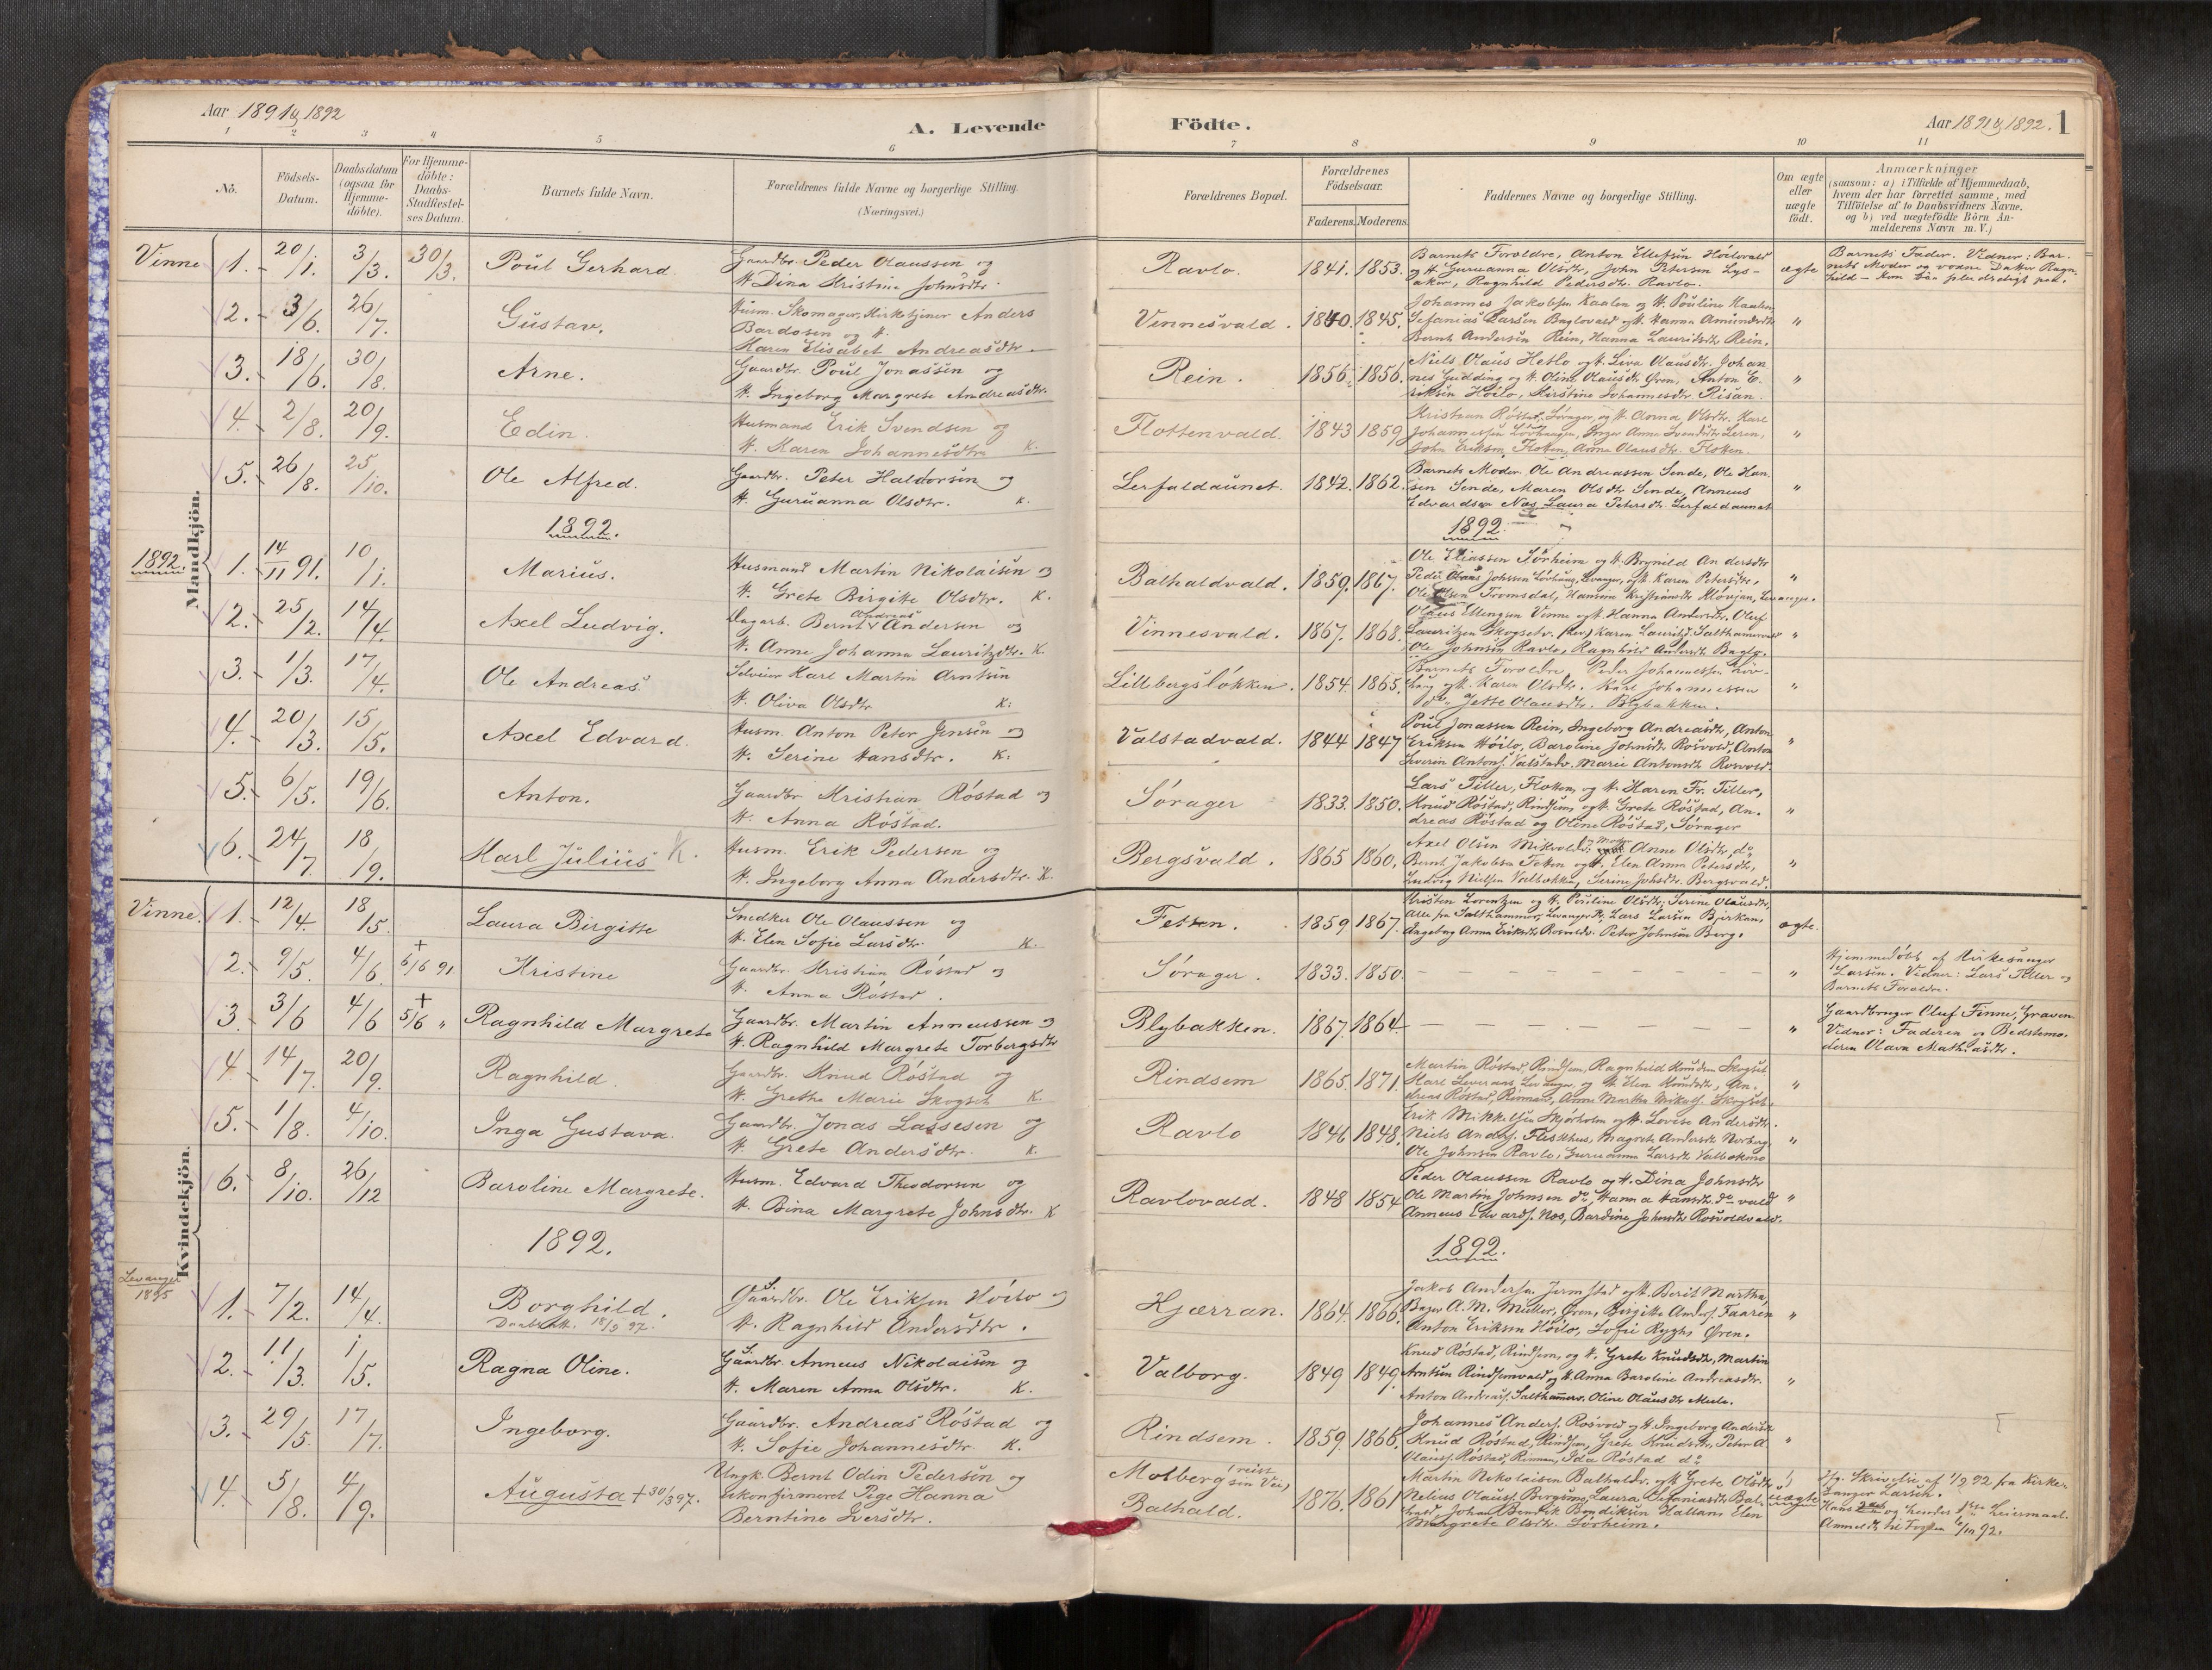 Aar 1891 & 1892
A. Levende
Födte.
Aar 1891 & 1892. 1
1 2 3 4 5 6 7 8 9 10 11
No.
Födsels-Datum.
Daabsdatum (ogsaa for Hjemme-döbte).
For Hjemme-döbte: Daabs-Stadfæstel-ses Datum.
Barnets fulde Navn.
Forældrenes fulde Navne og borgerlige Stilling.
(Næringsvei.)
Forældrenes Bopæl.
Forældrenes Födselsaar.
Faderens. Moderens.
Faddernes Navne og borgerlige Stilling.
Om ægte eller uægte födt.
Anmærkninger
(saasom: a) i Tilfælde af Hjemmedaab,
hvem der har forrettet samme, med
Tilföielse af to Daabsvidners Navne,
og b) ved uægtefödte Börn An-
melderens Navn m. V.)
Mandkjön.
Vinne 1. 20/1. 3/3. 30/3. Poul Gerhard.
Gaardbr. Peder Olaussen og
H. Dina Kristine Johnsdtr.
Ravlo. 1841. 1853.
Barnets Foreldre, Anton Ellefsen Höilovald
og H. Guruanna Olsdtr, John Petersen Lys-
aker, Ragnhild Pedersdtr. Ravlo.
ægte
Barnets Fader. Vidner: Bar-
nets Moder og voxne Datter Ragn-
hild
2. 3/6. 26/7. Gustav.
Husm. Skomager, Kirketjener Anders
Bardosen og H.
Karen Elisabet Andreasdtr.
Vinnesvald. 1840. 1845.
Johannes Jakobsen Kaalen og H. Pouline Kaalen
Sefanias Larsen Baglovald og H. Hanna Amundsdtr
Bernt Andersen Rein, Hanna Lauritsdtr Rein.
"
3. 18/6. 30/8. Arne.
Gaardbr. Poul Jonassen og
H. Ingeborg Margrete Andreasdtr.
Rein. 1856. 1856.
Niels Olaus Hetlo og H. Liva Olausdtr. Johan
nes Gudding og H. Oline Olausdtr Øren, Anton E-
riksen Höilo, Kirstine Johannesdtr Risan.
"
4. 2/8. 20/9. Edin.
Husmand Erik Svendsen og
H. Karen Johannesdtr K.
Flottenvald. 1843 1859
John Eriksen Floten, Anne Olausdtr. Floten.
"
5. 26/8. 25/10. Ole Alfred.
Gaardbr. Peter Haldorsen og
H. Guruanna Olsdtr. K.
Lerfaldaunet. 1842. 1862.
Barnets Moder. Ole Andreassen Sende, Ole Han
sen Sende, Maren Olsdtr Sende, Anneus
Edvardsen Næs, Laura Petersdtr. Lerfaldaunet
"
1892.
1892.
1892. 1. 14/11 91. 10/1. Marius.
Husmand Martin Nikolaisen og
H. Grete Birgitte Olsdtr. K.
Balhaldvald. 1859. 1867.
Ole Eliassen Sørheim og H. Brynild Andersdtr
"
2. 25/2. 14/4. Axel Ludvig.
Dagarb. Bernt Andreas Andersen og
H. Anne Johanna Lauritzdtr. K.
Vinnesvald. 1867. 1868.
Ole Johnsen Ravlo, Ragnhild Andersdtr Baglo.
"
3. 1/3. 17/4. Ole Andreas.
Selveier Karl Martin Arntsen
H. Oliva Olsdtr K.
Lillebergsløkken. 1854. 1865.
Barnets Foreldre, Peder Johannessen Løv-
haug og H. Karen Olsdtr. Karl Johannessen
do Jette Olausdtr. Blybakken.
"
4. 20/3. 15/5. Axel Edvard.
Husm. Anton Peter Jensen og
H. Serine Hansdtr. K.
Valstadvald. 1844 1847
Poul Jonassen Rein, Ingeborg Andreasdtr, Anton
Eriksen Höilo, Baroline Johnsdtr Rosvold, Anton
Severin Antons. Valstadv. Marie Antonsdtr Rosvold.
"
5. 6/5. 19/6. Anton.
Gaardbr Kristian Röstad og
H. Anna Röstad.
Sørager 1833. 1850.
Lars Tiller, Floten, og H. Karen Fr. Tiller,
Knud Röstad, Rindsem, og H. Grete Röstad, An-
dreas Röstad og Oline Röstad, Sørager
"
6. 24/7. 18/9. Karl Julius K.
Husm. Erik Pedersen og
H. Ingeborg Anna Andersdtr. K.
Bergsvald. 1865 1860.
Bernt Jakobsen Floten og H. Elen Anna Petersdtr,
Ludvig Nielsen Valbekken, Serine Johsdtr. Bergsvald.
"
Kvindekjön.
Vinne. 1. 12/4. 18/5. Laura Birgitte
Snedker Ole Olaussen og
H. Elen Sofie Larsdtr. K.
Fetten. 1859 1867.
Kristen Lorentzen og H. Pauline Olsdtr, Serene Olausdtr,
alle fra Salthammer, Levanger, Lars Larsen Bjerkan,
Ingebog Anna Eriksdtr Rosvoldv. Peter Johnsen Berg.
ægte.
2. 9/5. 4/6. + 6/6 91 Kristine
Gaardbr. Kristian Röstad og
H. Anna Röstad.
Sørager. 1833. 1850.
"
Hjemmedøbt af Kirkesanger
Larsen. Vidner: Lars Tiller og
Barnets Foreldre.
3. 3/6 4/6 + 5/6 " Ragnhild Margrete
Gaardbr. Martin Anneussen og
H. Ragnhild Margrete Torbergsdtr
Blybakken. 1867. 1864
"
Gaardbruger Oluf Finne, Graven
Vidner: Faderen og Bedstemo-
deren Olava Mathiasdtr.
4. 14/7. 20/9. Ragnhild.
Gaardbr. Knud Röstad og
H. Grethe Marie Skogset K.
Rindsem 1865. 1871.
Martin Röstad, Rindsem, Ragnhild Knudsen Skogset
"
5. 1/8. 4/10. Inga Gustava.
Gaardbr. Jonas Lassesen og
H. Grete Andersdtr. K.
Ravlo 1846 1848.
Erik Mikkelsen Skjørholm og H. Lovise Andersdtr.
Niels Anders. Fleskhus, Magrete Andersdtr Norberg
Ole Johnsen Ravlo, Guruanna Larsdtr Valbekmo
"
6. 8/10. 26/12 Baroline Margrete.
Husm. Edvard Theodorsen og
H. Bina Margrete Johnsdtr. K
Ravlovald. 1848 1854
Peder Olaussen Ravlo og H. Dina Johnsdtr
Ole Martin Johnsen do, Hanna Hansdtr. do vald
Anneus Edvards. Næs, Bardine Johnsdtr Rosvoldvald.
"
1892.
1892.
Levanger
1895
1. 7/2. 14/4. Borghild.
Daabsatt. 18/5 97.
Gaardbr. Ole Eriksen Höilo og
H. Ragnhild Andersdtr.
Hjærran. 1864. 1866.
Jakob Andersen Jermstad og H. Berit Martha,
Bager A. M. Müller, Øren, Birgitte Anders. Faaren
Anton Eriksen Höilo, Sofie Rygh Øren.
"
2. 11/3. 1/5. Ragna Oline.
Gaardbr. Anneus Nikolaisen og
H. Maren Anna Olsdtr. K.
Valborg. 1849 1849.
Knud Röstad, Rindsem, og H. Grete Knudsdtr, Martin
Arntsen Rindsemvald og H. Anna Baroline Andreasdtr.
Anton Andreass. Salthammerv. Oline Olausdtr Mule.
"
3. 29/5. 17/7. Ingeborg.
Gaardbr. Andreas Röstad og
H. Sofie Johannesdtr. K.
Rindsem. 1859. 1866.
Johannes Anders. Rosvold og H. Ingeborg Andersdtr
Knud Röstad, Rindsem, Grete Knudsdtr, Peter A.
Olauss. Röstad, Rinnan, Ida Röstad do
"
4. 5/8. 4/9. Augusta + 30/3 97.
Ungk. Bernt Odin Pedersen og
ukonfirmeret Pige Hanna
Berntine Iversdtr.
Molberg (reist sin Vei)
Balhald. 1876. 1861
Martin Nikolaisen Balhaldv. og H. Grete Olsdtr
Margrete Olsdtr. Sørheim.
uægte
Ifg. Skrivelse af 1/9 92 fra Kirke-
sanger Larsen.
Hans 2det og hendes 1ste Leiermaal.
Anmeldt til Fogden 6/10 92.